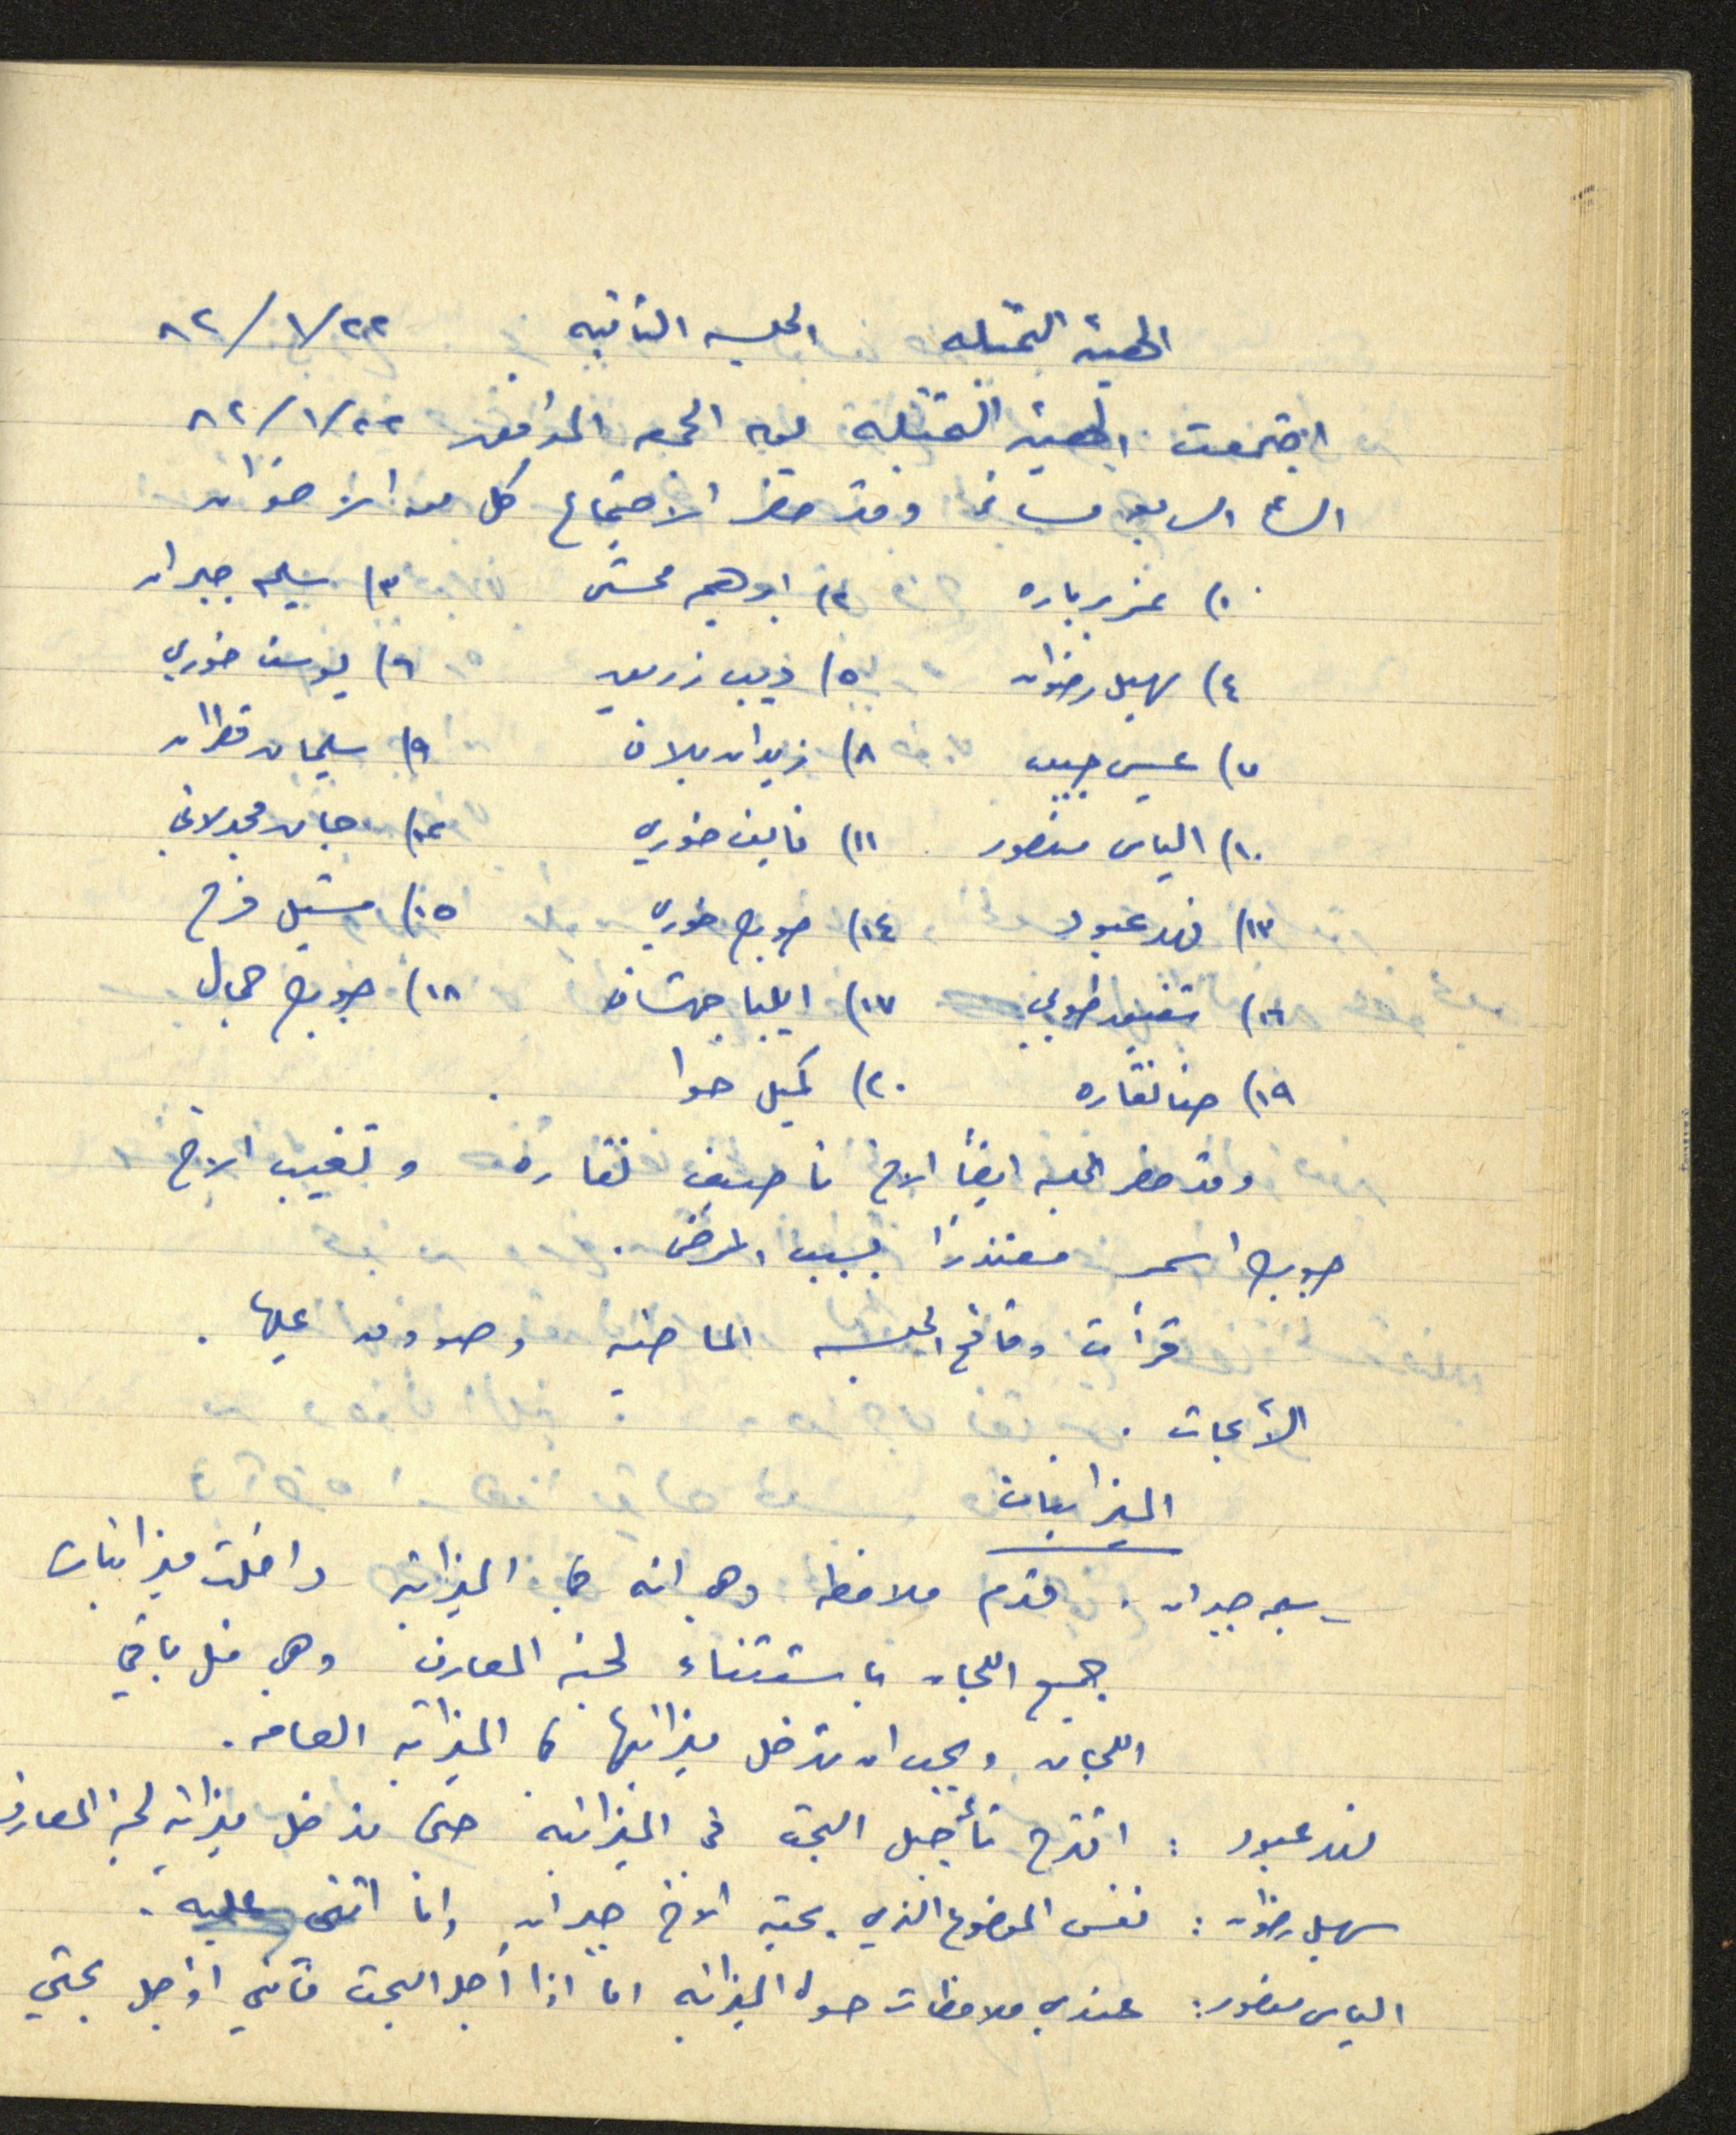 الهيئة التمثيلة الجلسه الثانيه ٨٢/١/٢٢
اجتمعت الهيئة التمثيله يوم الجمعه الموافق ٨٢/١/٢٢
الساعة السابعه مساءً وقد حضر الاجتماع كل من الاخوان
١) عزيز باره ٢) ابرهيم محشي ٣) سليم جبران
٤) سهيل رضوان ٥) ديب زريق ٦) يوسف خوري
٧) عيسى حبيب ٨) زيدان بلان ٩) سليمان قطران
١٠) الياس منصور ١١) نايف خوري ١٢) جان مجدلاني
١٣) فهد عبود ١٤) جورج خوري ١٥) ميشيل فرح
١٦) شفيق طوبي ١٧) ايليا جهشان ١٨) جورج جمال
١٩) حنا نقاره ٢٠) كميل حوا
وقد حضر الجلسه ايضاً الاخ ناصيف نقاره وتغيب الاخ
جورج اسمر معتذراً بسبب المرض.
قرأت وقائع الجلسه الماضيه وصودق عليها.
الأبحاث.
الميزانيات
سليم جبران. قدم ملاحظه وهي انه في الميزانيه داخلت ميزانيات
جميع اللجان باستثناء لجنه المعارف وهي مثل باقي
اللجان ويجب ان تدخل ميزانيتها في الميزانيه العامه.
فهد عبود: اقترح تأجيل البحث في الميزانيه حتى ندخل ميزانيه لجنة المعارف
سهيل رضوان: نفس الموضوع الذي بحثه الاخ جبران وانا اثني عليه.
الياس منصور: عندي ملاحظات حول الميزانيه اما اذا أجل البحث فانني اؤجل بحثي